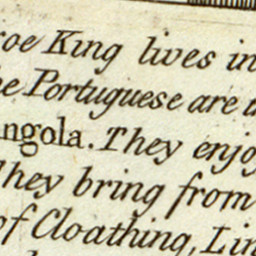 roe King lives in
he Portuguese are
ngola. They enjo
They bring from
of Cloathing, Lin